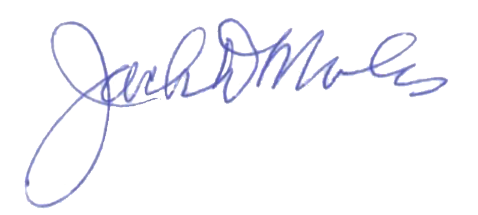 Jack D Moles